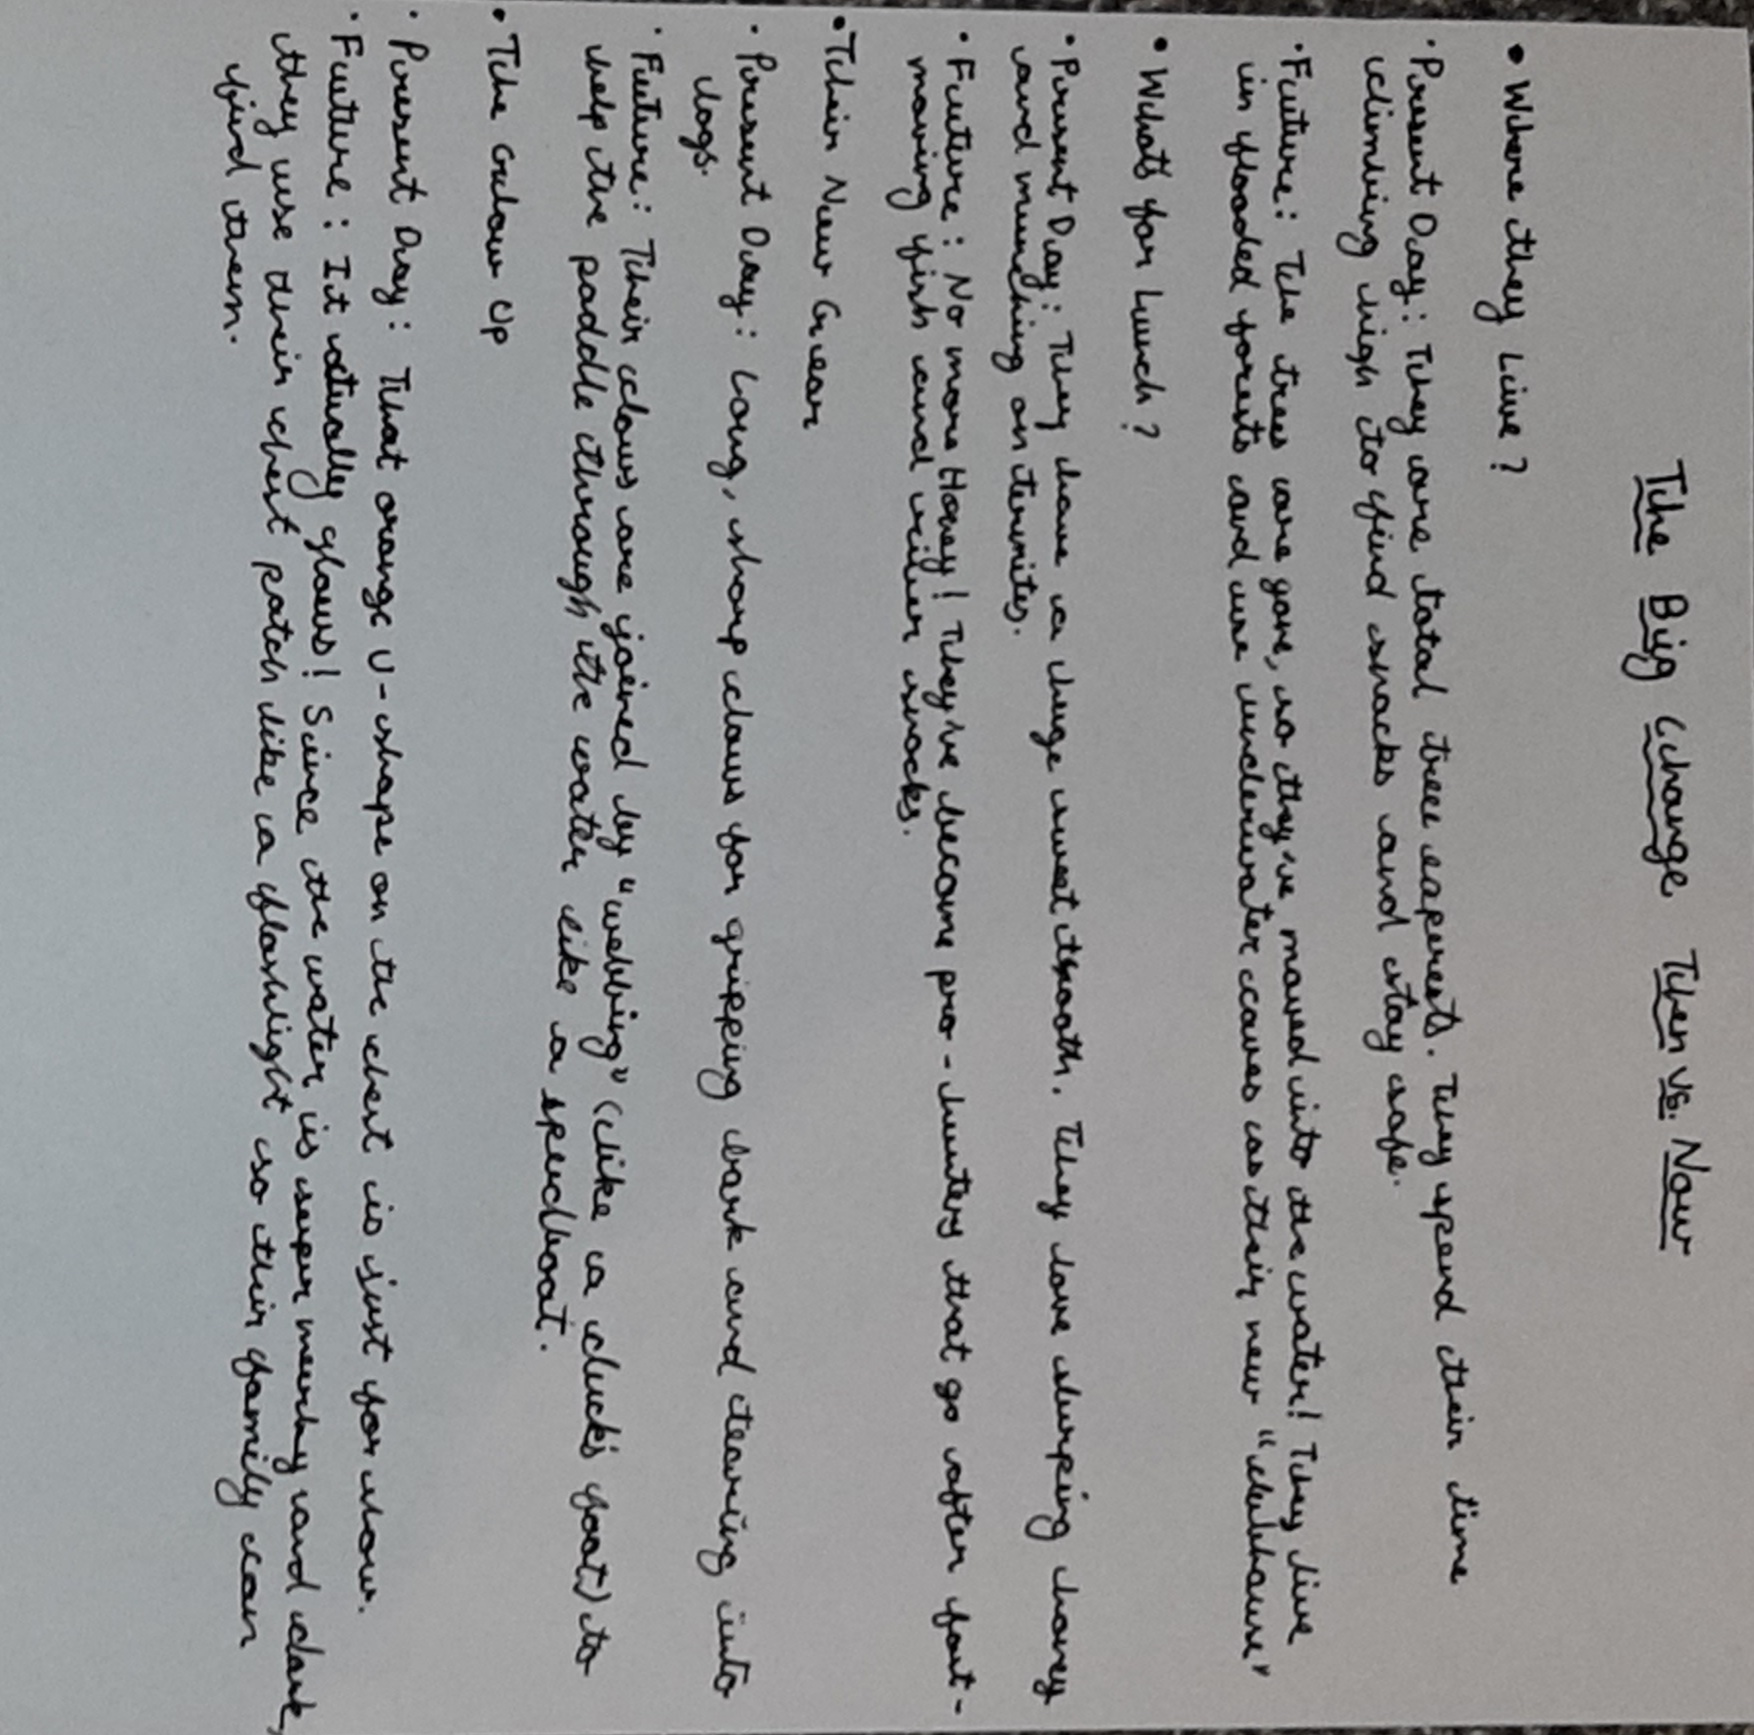 The Big Change Then vs. Now
• Where they Live?
• Present Day: They are total tree experts. They spend their time
climbing high to find snacks and stay safe.
• Future: The trees are gone, so they've moved into the water! They live
in flooded forests and use underwater caves as their new "clubhouse"
• What's for Lunch?
• Present Day: They have a huge sweet tooth. They love slurping honey
and munching on termites.
• Future: No more Honey! They've become pro-hunters that go after fast-
moving fish and river snacks.
• Their New Gear
• Present Day: Long, sharp claws for gripping bark and tearing into
logs.
• Future: Their claws are joined by "webbing" (like a duck's foot) to
help the paddle through the water like a speedboat.
• The Glow Up
• Present Day: That orange U-shape on the chest is just for show.
• Future: It actually glows! Since the water is super murky and dark,
they use their chest patch like a flashlight so their family can
find them.